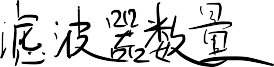 滤波器数量